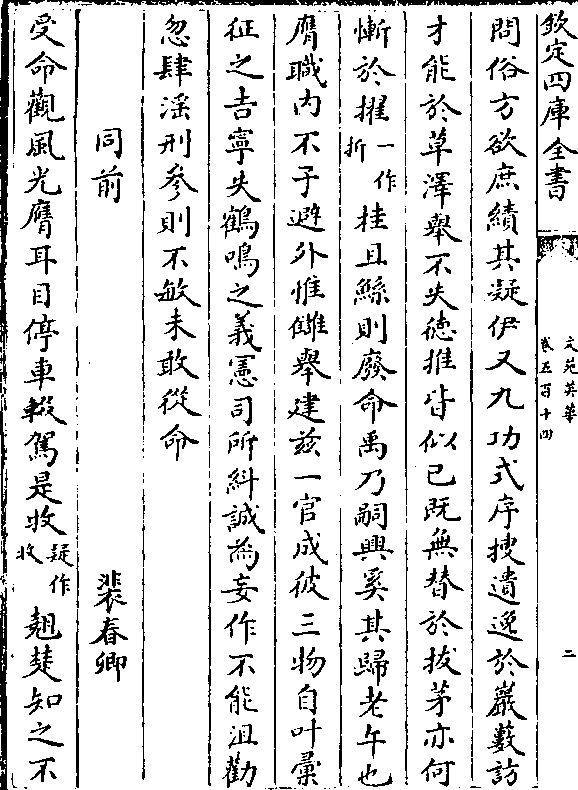 欽定四庫全書
文苑英華
卷五百十四
二
問俗方欲庶績其凝伊乂九功式序搜遺逸於巖藪訪
才能於草澤舉不失德推皆似已既無替於拔茅亦何
慚於擢一作折桂且鯀則廢命禹乃嗣興奚其歸老午也
膺職内不子避外惟讎舉建兹一官成彼三物自叶彙
征之吉寧失鶴鳴之義憲司所糾誠為妄作不能沮勸
忽肆滛刑參則不敏未敢從命
同前
裴春卿
受命觀風光膺耳目停車輟駕是牧疑作收翹楚知之不